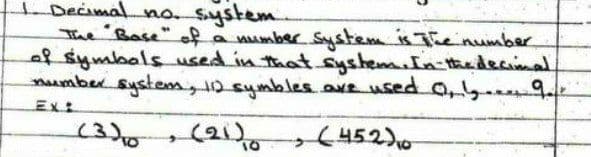 1. Decimal no. system.
The "Base" of a number system is the number
of symbols used in that system. In the decimal
number system, 10 symbles are used 0, 1, .... 9.
EX:
(3)10 , (21)10 , (452)10